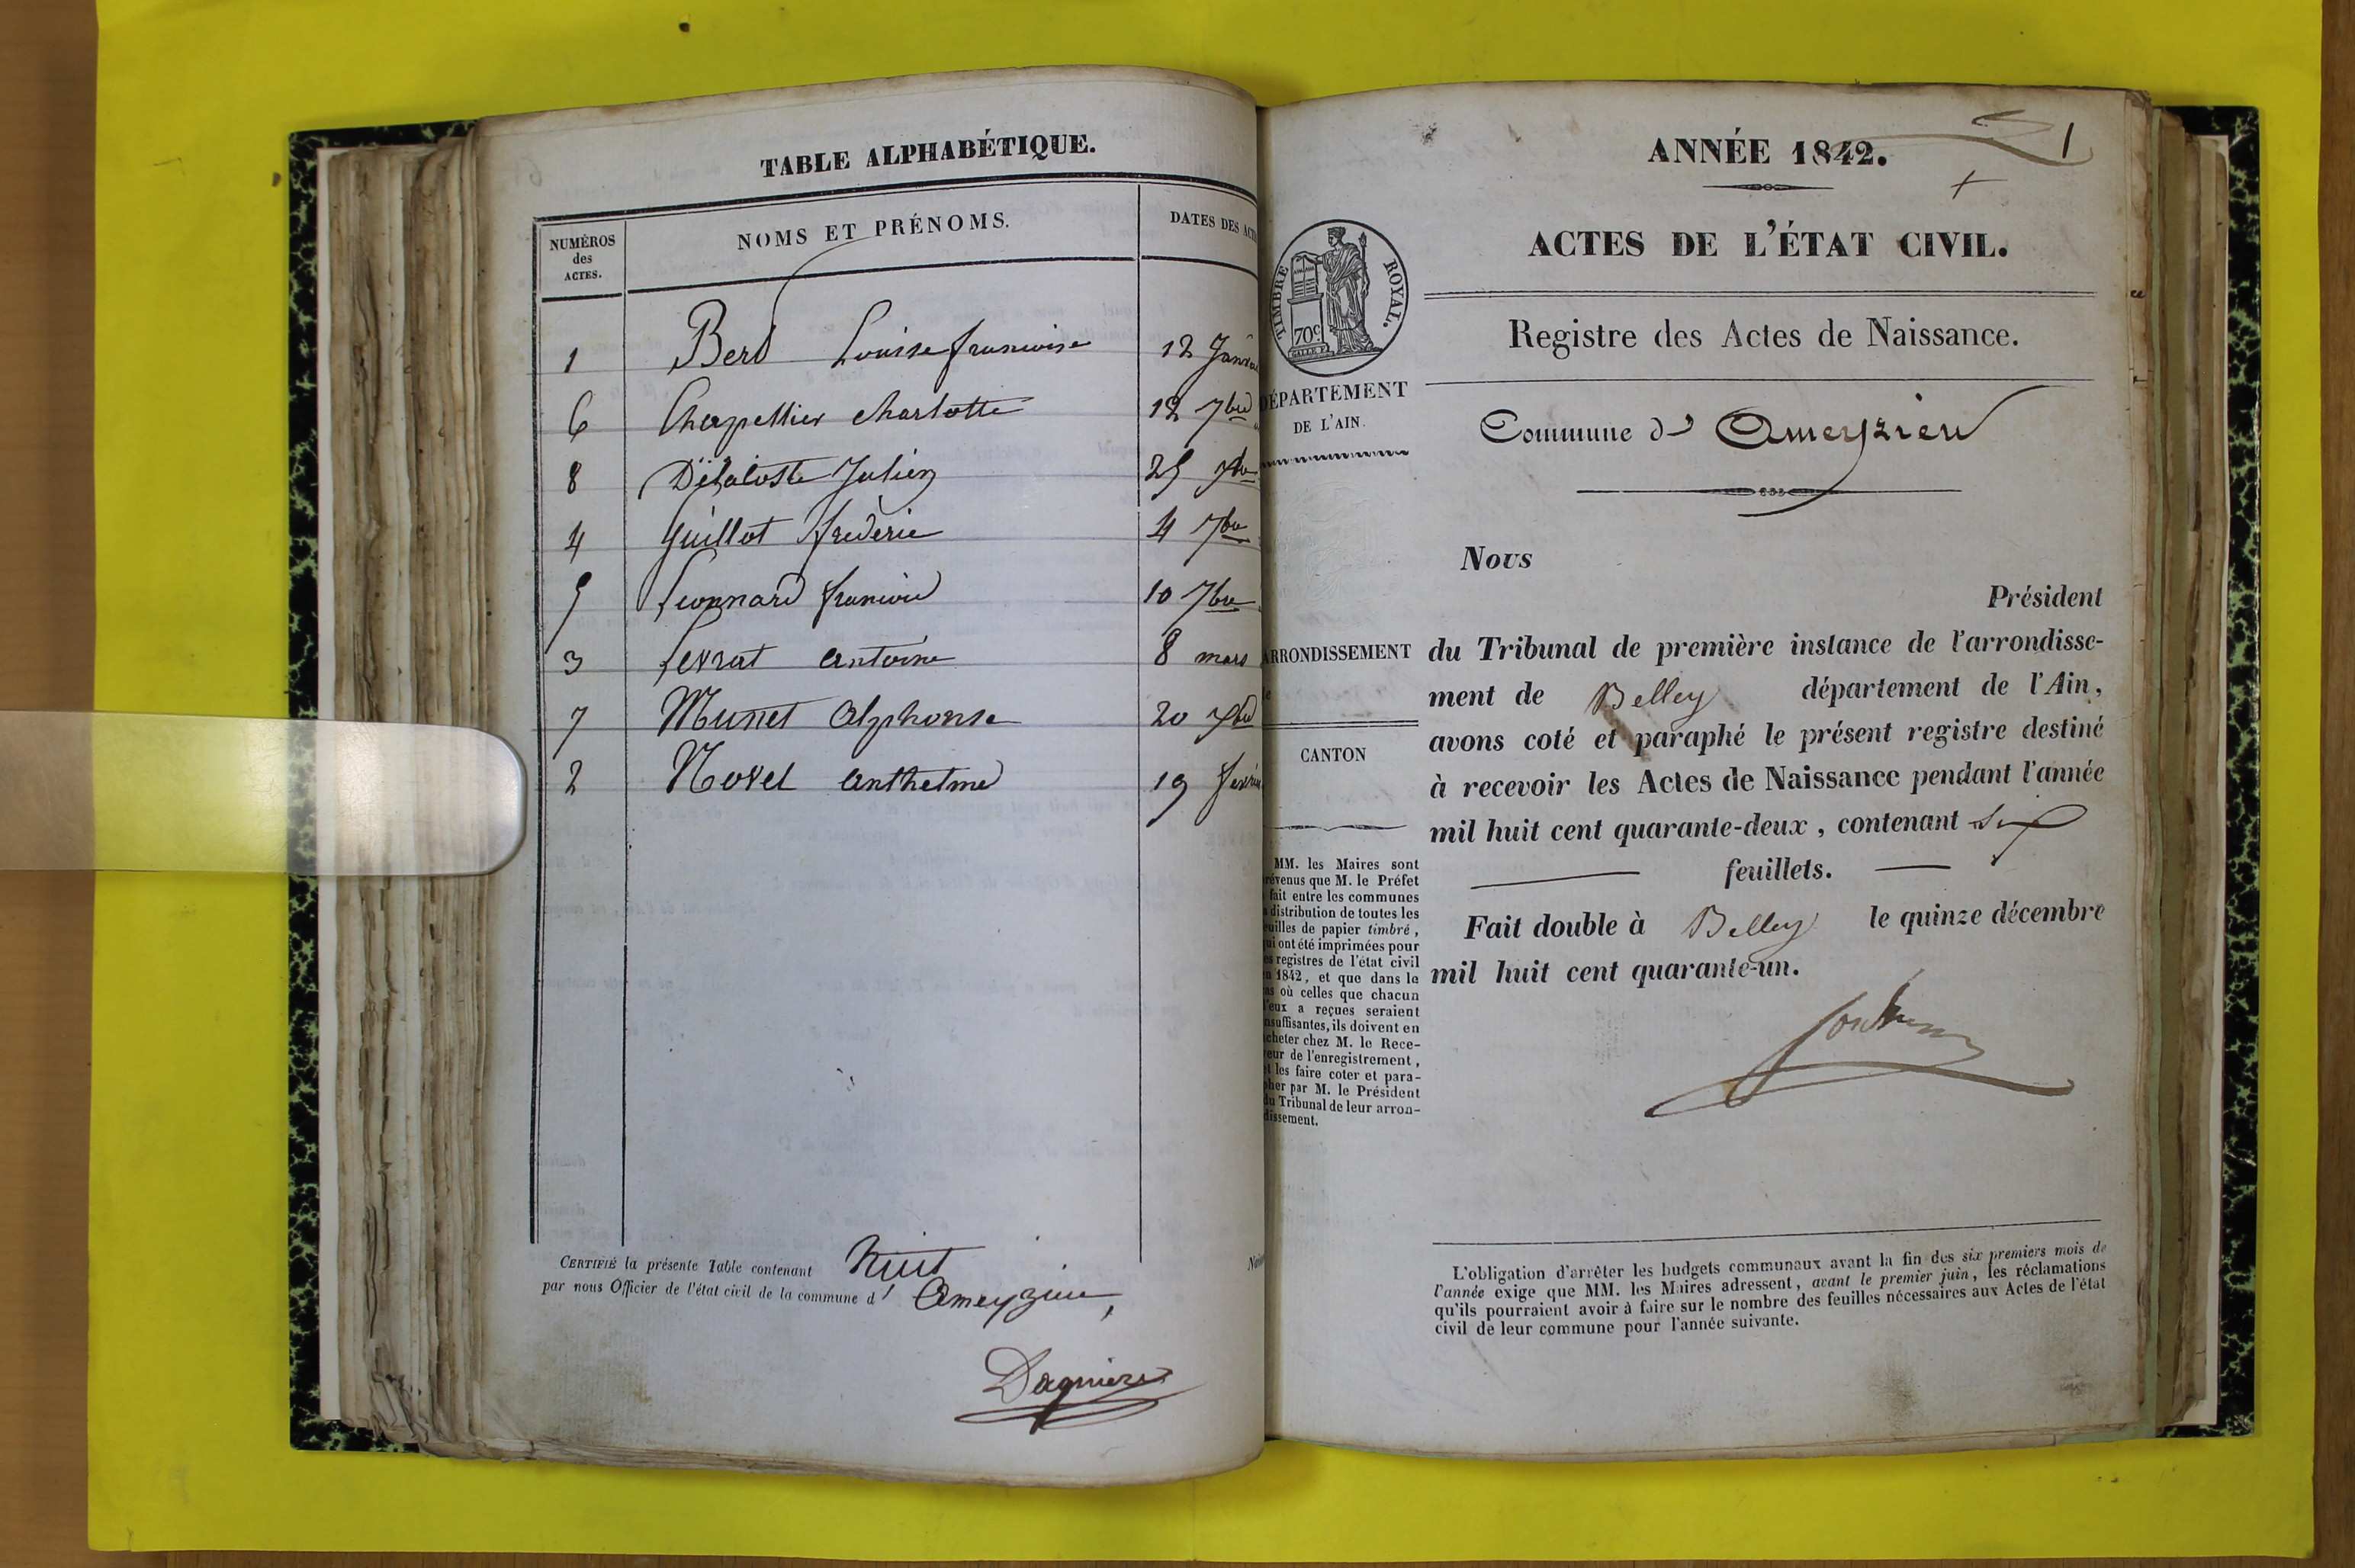 TABLE ALPHABÉTIQUE.
NUMÉROS des ACTES.
NOMS ET PRÉNOMS.
DATES DES
1 Berd Louise francoise 12
6 Chapellier charlotte 12 7bre
8 Délaloste Julien 25
4 Guillot frédéric 4 7bre
5 Leonnard francois 10 7bre
3 Levrat antoine 8 mars
7 Munet alphonse 20
2 Novel anthelme 19
CERTIFIÉ la présente Table contenant huit
par nous Officier de l'état civil de la commune d' Ameyzieu,
Dagnieres
1
ANNÉE 1842.
ACTES DE L'ÉTAT CIVIL.
Registre des Actes de Naissance.
Commune d' Ameyzieu
TIMBRE ROYAL.
70c
DÉPARTEMENT
DE L'AIN.
ARRONDISSEMENT
CANTON
MM. les Maires sont
prévenus que M. le Préfet
fait entre les communes
distribution de toutes les
feuilles de papier timbré,
qui ont été imprimées pour
les registres de l'état civil
en 1842, et que dans le
cas où celles que chacun
d'eux a reçues seraient
insuffisantes, ils doivent en
acheter chez M. le Rece-
veur de l'enregistrement,
et les faire coter et para-
pher par M. le Président
du Tribunal de leur arron-
dissement.
Nous
Président
du Tribunal de première instance de l'arrondisse-
ment de Belley département de l'Ain,
avons coté et paraphé le présent registre destiné
à recevoir les Actes de Naissance pendant l'année
mil huit cent quarante-deux, contenant six
feuillets.
Fait double à Belley le quinze décembre
mil huit cent quarante-un.
L'obligation d'arrêter les budgets communaux avant la fin des six premiers mois de
l'année exige que MM. les Maires adressent, avant le premier juin, les réclamations
qu'ils pourraient avoir à faire sur le nombre des feuilles nécessaires aux Actes de l'état
civil de leur commune pour l'année suivante.